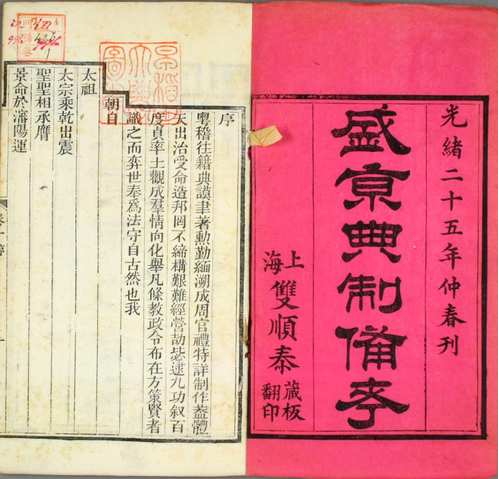 光緒二十五年仲春刊
盛京典制備考
上海
雙順泰
藏板
翻印
序
粵稽往籍典謨聿著勳勤緬溯成周官禮特詳制作蓋體
天出治受命造邦罔不締構艱難經營劼毖逮九功叙百
度貞率土觀成羣情向化舉凡條教政令布在方策賢者
識之而弈世奉為法守自古然也我
朝自
太祖
太宗乘乾出震
聖聖相承膺
景命於瀋陽運